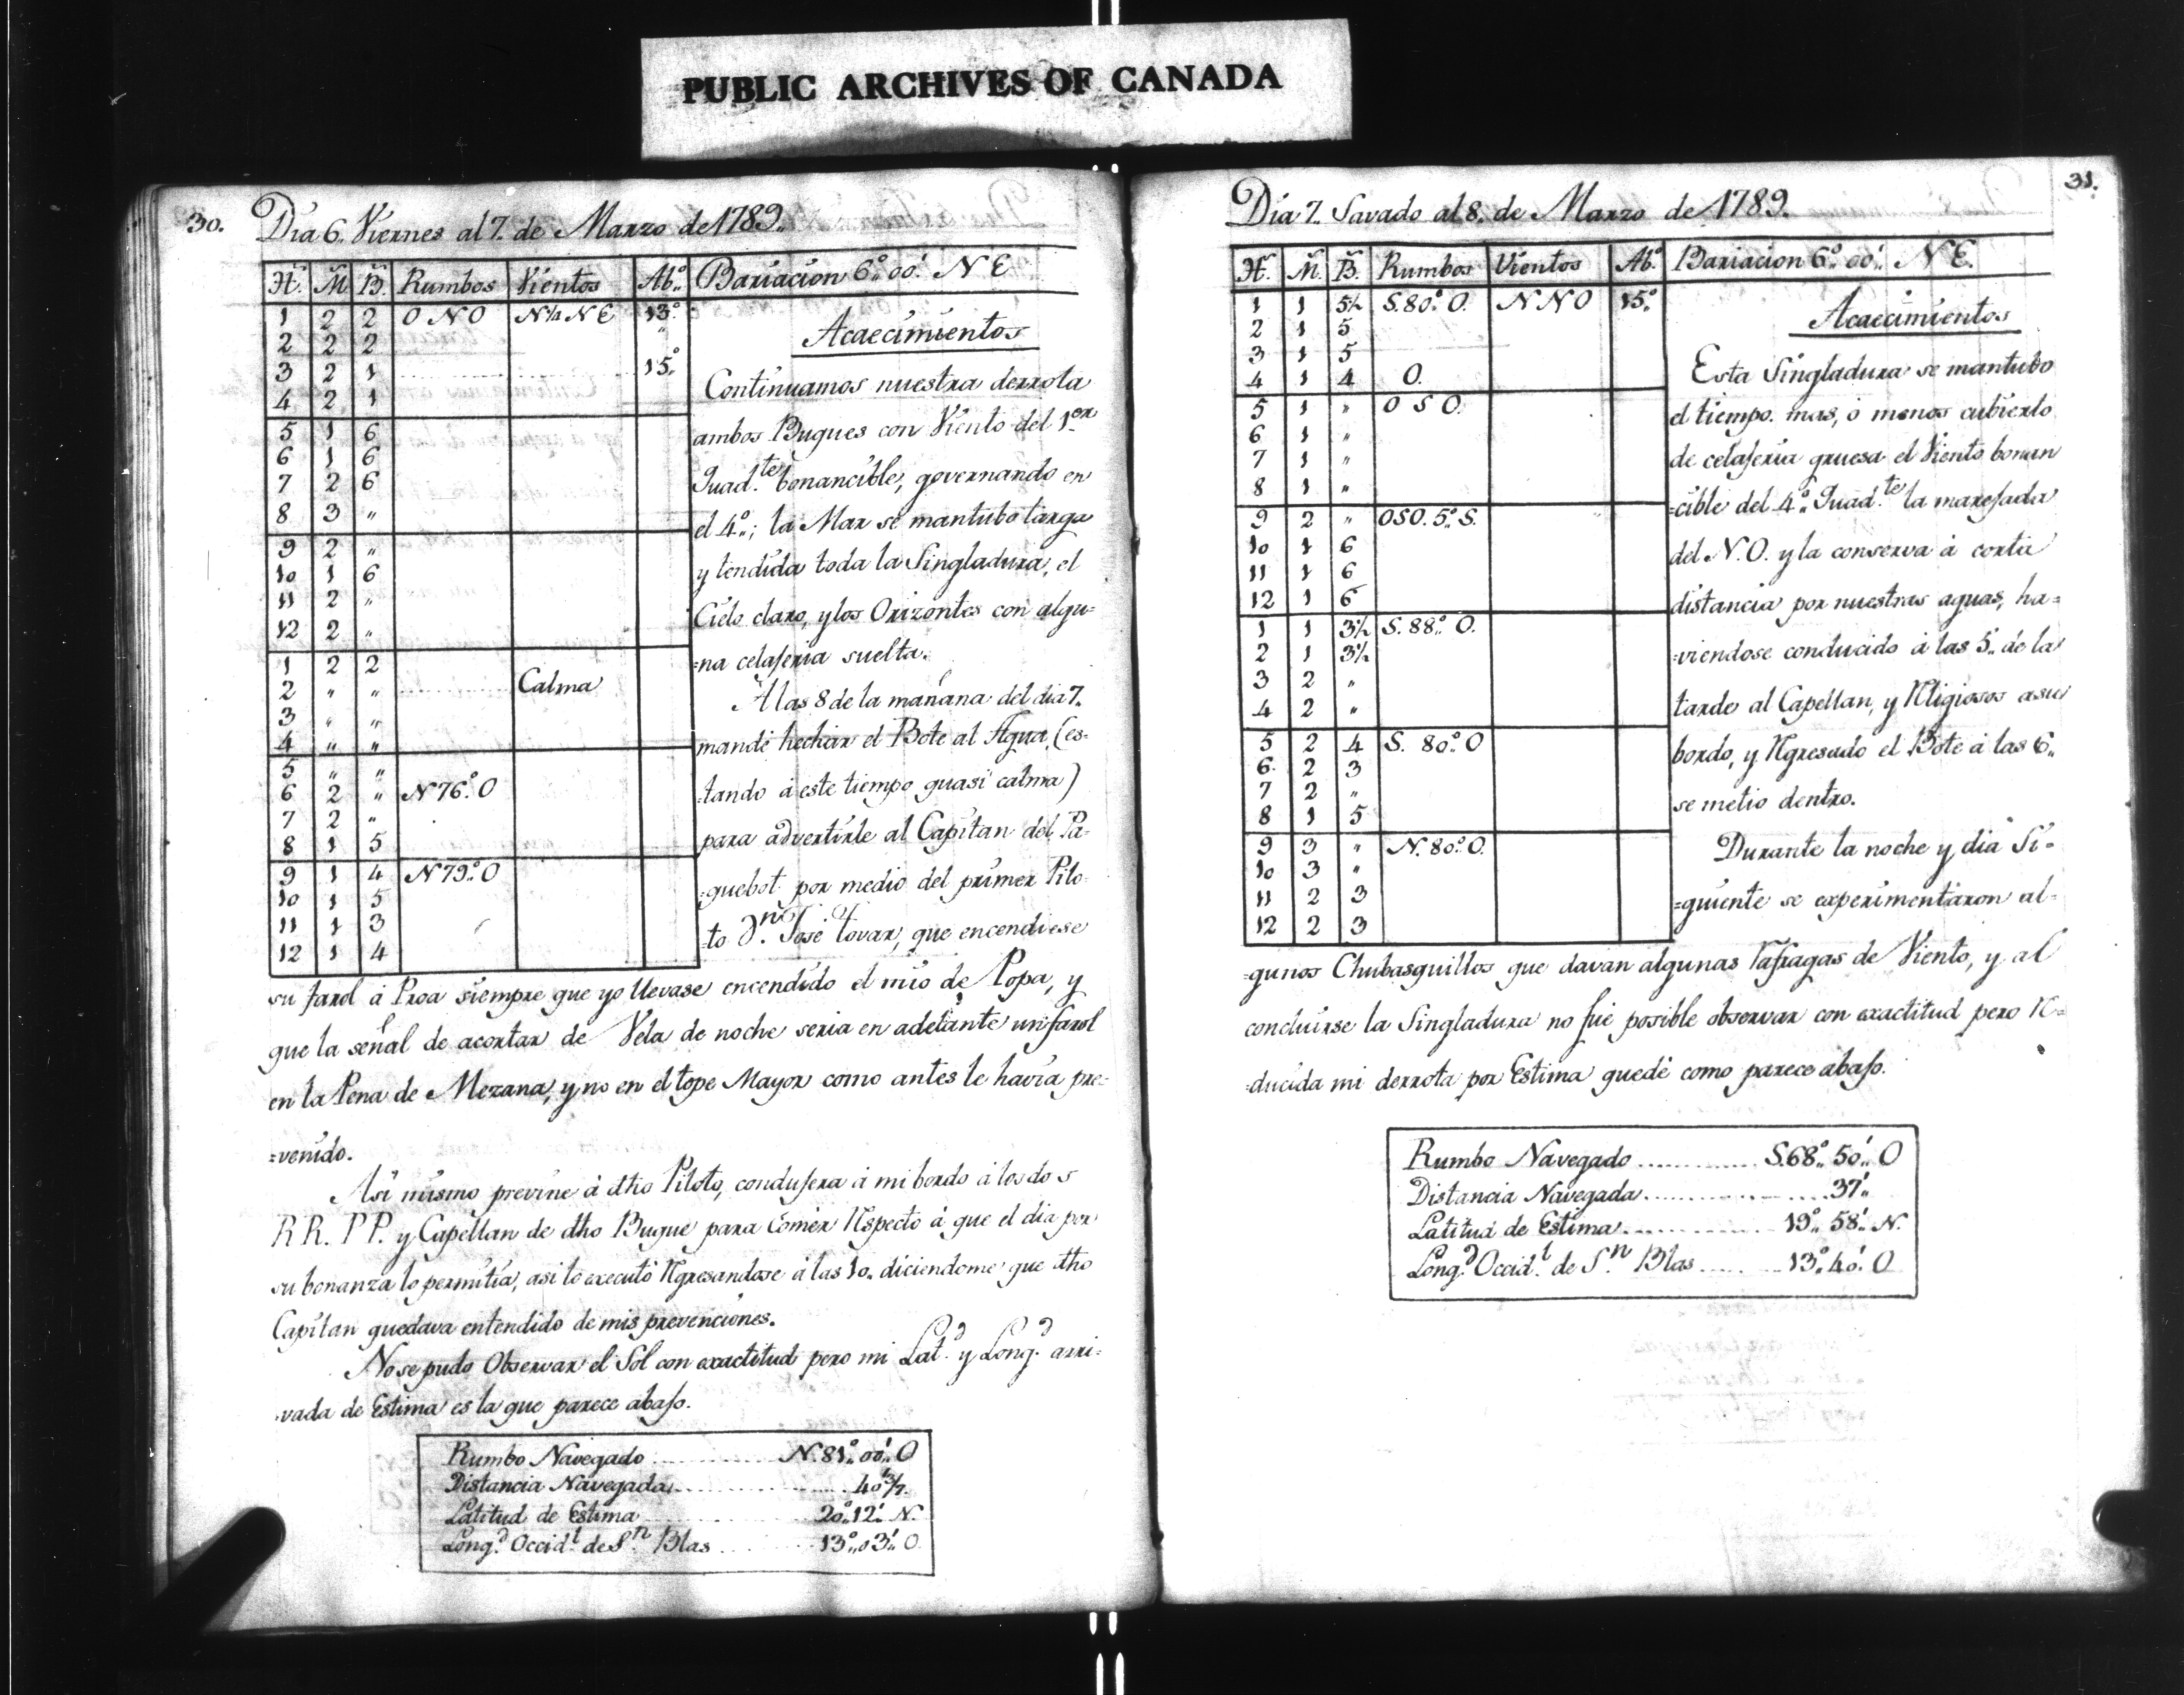 PUBLIC ARCHIVES OF CANADA
30.
Dia 6. Viernes al 7. de Marzo de 1789.
H. M B. Rumbos Vientos Ab.º Bariacion 6.º 00.' N E
1 2 2 O N O N¼NE 13.º
2 2 2 "
3 2 1 15.º
4 2 1
5 1 6
6 1 6
7 2 6
8 3 "
9 2 "
10 1 6
11 2 "
12 2 "
1 2 2
2 " " Calma
3 " "
4 " "
5 " "
6 2 " N 76.º O
7 2 "
8 1 5
9 1 4 N 79.º O
10 1 5
11 1 3
12 1 4
Acaecimientos
Continuamos nuestra derrota
ambos Buques con Viento del 1.er
Quad.te bonancible, governando en
el 4.º; la Mar se mantubo larga
y tendida toda la Singladura, el
Cielo claro, y los Orizontes con algu=
=na celajeria suelta.
A las 8 de la mañana del dia 7.
mandé hechar el Bote al Agua, (es-
-tando á este tiempo quasi calma)
para advertirle al Capitan del Pa-
-quebot por medio del primer Pilo-
-to D.n José Tovar, que encendiese
su farol á Proa siempre que yo llevase encendido el mio de Popa, y
que la señal de acortar de Vela de noche seria en adelante un farol
en la Pena de Mezana, y no en el tope Mayor como antes le havia pre-
=venido.
Asi mismo previne á dho Piloto, condujera á mi bordo á los dos
R R. P P. y Capellan de dho Buque para Comer Respecto á que el dia por
su bonanza lo permitia, asi lo executó Regresandose á las 10. diciendome que dho
Capitan quedava entendido de mis prevenciones.
No se pudo Observar el Sol con exactitud pero mi Lat.d y Long.d arri-
-vada de Estima es la que parece abajo.
Rumbo Navegado ............ N.81.º 00.' O
Distancia Navegada ............ 40'
Latitud de Estima ............ 20.º 12.' N.
Long.d Occid.l de S.n Blas ............ 13.º 03.' O.
31.
Dia 7. Savado al 8. de Marzo de 1789.
H. M. B. Rumbos Vientos Ab.º Bariacion 6.º 00.' N E.
1 1 5½ S. 80.º O. N N O 15.º
2 1 5
3 1 5
4 1 4 O.
5 1 " O S O.
6 1 "
7 1 "
8 1 "
9 2 " OSO. 5.º S.
10 1 6
11 1 6
12 1 6
1 1 3½ S. 88.º O.
2 1 3½
3 2 "
4 2 "
5 2 4 S. 80.º O
6 2 3
7 2 "
8 1 5
9 3 " N. 80.º O.
10 3 "
11 2 3
12 2 3
Acaecimientos
Esta Singladura se mantubo
el tiempo. mas, ó menos cubierto
de celajeria gruesa el Viento bonan
=cible del 4.º Quad.te la marejada
del N.O. y la conserva á corta
distancia por nuestras aguas, ha=
=viendose conducido á las 5. de la
tarde al Capellan, y Religiosos a su
bordo, y Regresado el Bote á las 6.
se metio dentro.
Durante la noche y dia Si=
=guiente se experimentaron al-
=gunos Chubasquillos que davan algunas rafragas de Viento, y al
concluirse la Singladura no fué posible observar con exactitud pero Re=
=ducida mi derrota por Estima quedé como parece abajo.
Rumbo Navegado ............ S.68.º 50.' O
Distancia Navegada ............ 37.'
Latitud de Estima ............ 19.º 58.' N.
Long.d Occid.l de S.n Blas ............ 13.º 40.' O